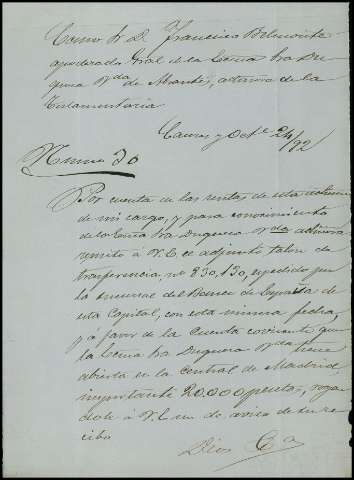 Excmo Sr D. Francisco Belmonte
apoderado Gral de la Excma Sra Du
quesa Vda de Abrantes, admora de la
Testamentaria
Caceres y Octe 24/92
Numo 30
Por cuenta de las rentas de esta
de mi cargo, y para conocimiento
de la Excma Sra Duquesa Vda admora
remito á V.E. el adjunto talon de
trasferencia, no 830,130, expedido por
la sucursal del Banco de España de
esta Capital, con esta misma fecha,
y á favor de la cuenta corriente que
la Excma Sra Duquesa Vda tiene
abierta en la Central de Madrid,
importante 20.000 pesetas, rogan
dole á V.E. me dé aviso de su re
cibo
Dios Ga